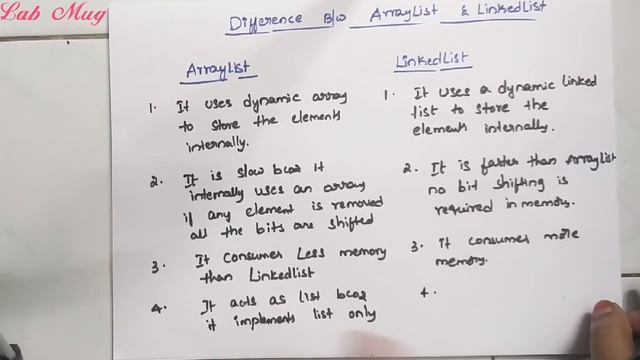 Lab Mug
Difference B/w ArrayList & LinkedList
ArrayList
1. It uses dynamic array
to store the elements
internally.
2. It is slow bcoz it
internally uses an array
if any element is removed
all the bits are shifted
3. It consumes Less memory
than LinkedList
4. It acts as list bcoz
it implements list only
LinkedList
1. It uses a dynamic linked
list to store the
elements internally.
2. It is faster than ArrayList
no bit shifting is
required in memory.
3. it consumes more
memory.
4.